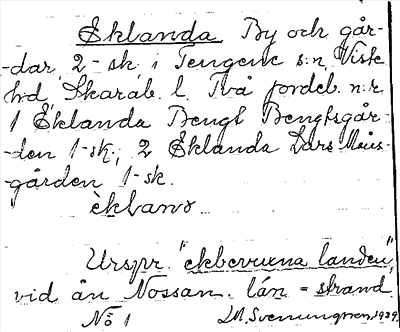 Eklanda By och går-
-dar, 2-sk. i Tengene s:n, Viste
h:d, Skarab. l. Två jordeb. n:r
1 Eklanda Bengt Bengtsgår-
-den 1-sk., 2 Eklanda Lars Måns-
-gården 1-sk.
èkland
Urspr. "ekbevuxna landen",
vid ån Nossan. lán = strand
No 1